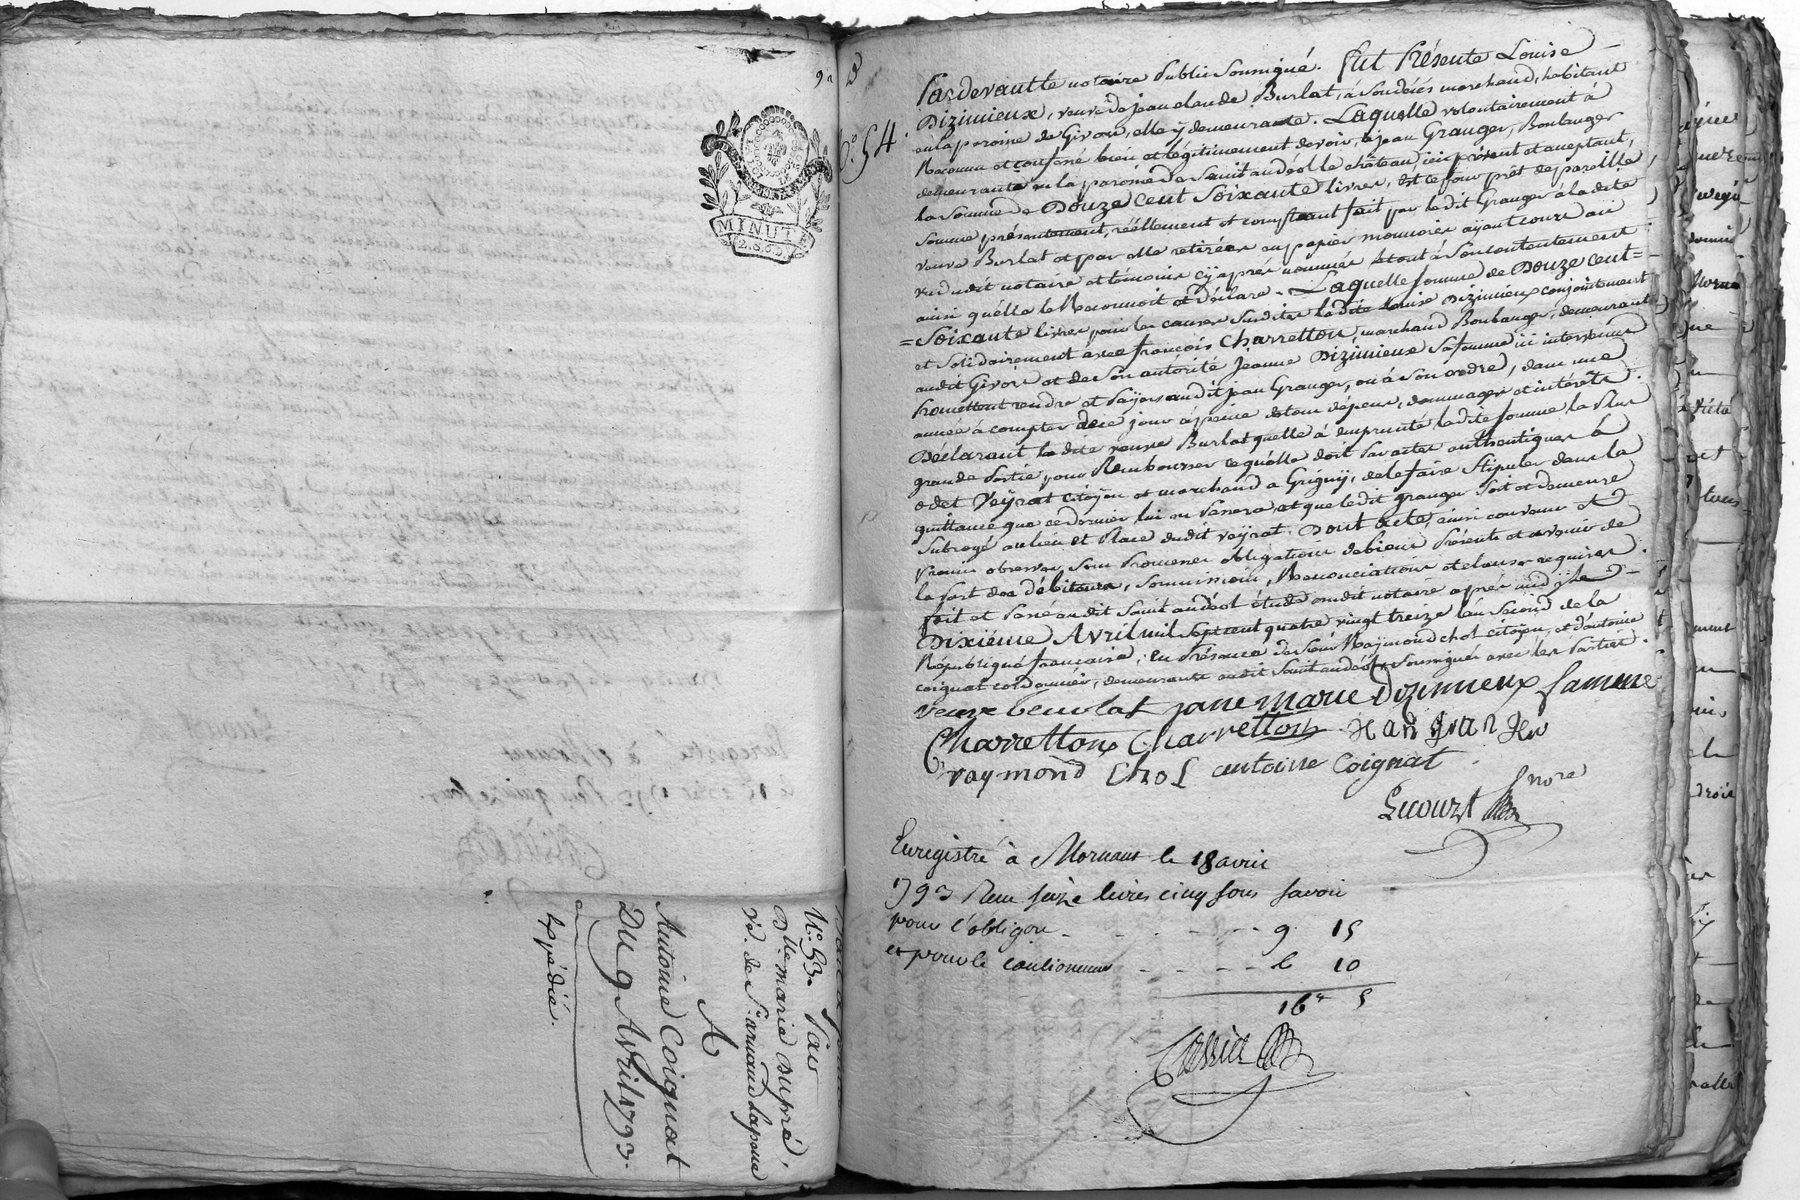 9a
MINUTE
2. S. 6 D.
N.º 53. Par
Dlle. marie Dupré,
vᵉ. de Sʳ. armand Lapoue
A
Antoine Coignat
Du 9 Avril 1793.
Expédié.
N.º 54.
Pardevant le notaire Public soussigné. fut Présente Louise
Dizimieux, veuve de jean claude Burlat, à son décès marchand, habitant
en la paroisse de Givors, elle ÿ demeurante. Laquelle volontairement à
Reconnu et confessé bien et légitimement devoir, à jean Granger, Boulanger
demeurant en la paroisse de Saint andéol le château ici présent et acceptant,
la Somme de Douze cent Soixante livres, est ce pour prêt de pareille
Somme présentement, réellement et comptant fait par ledit Granger à la dite
veuve Burlat et par elle retirée en papier monnoies ayant cours aü
vu dudit notaire et témoins cÿ après nommés et tout à son contentement
ainsi quélle le Reconnoit et déclare. Laquelle somme de Douze cent =
= Soixante livres pour les causes susdites ladite Louise Dizimieux conjointement
et Solidairement avec françois Charretton, marchand Boulanger, demeurant
audit Givors et de Son autorité Jeanne Dizimieux Sa femme ici intervenus
Promettent rendre et Paÿer audit jean Granger, ou à Son ordre, dans une
année à compter de ce jour à peine de tous dépens, dommages et intérêts.
Déclarant la dite veuve Burlat quelle à emprunté ladite somme la Plus
grande Partie pour Rembourser ce quélle doit Par actes authentiques à
odet Veÿrat citoÿen et marchand à Grignÿ, de le faire Stipuler dans la
quittance que ce dernier lui en Passera et que le dit granger Soit et demeure
Subrogé au lieu et Place dudit veÿrat. Dont acte, ainsi convenu et
Promis observer, Sous Promesses obligations de biens Présents et avenir de
la Part des débiteurs, Soumissions, Renonciations et clauses requises.
fait et Passé audit Saint andéol étude dudit notaire après midÿ Le
Dixiéme Avril mil Sept cent quatre vingt treize l'an Second de la
République françoise; en Présence de Sieur Raÿmond chol citoÿen, et d'antoine
coignat cordonnier, demeurants audit Saint andéol Soussignés avec les Parties.
veuve beurlat jane marie Dizimieux famme
Charretton Charretton Jan granger
raymond Chol antoine Coignat
Lecourt nore
Enregistré à Mornant le 18 avril
1793 Reçu seize livres cinq sous savoir
pour l'obligon - - - - 9 15
et pour le cautionnemt - - - - 6 10
16ᵗ 5